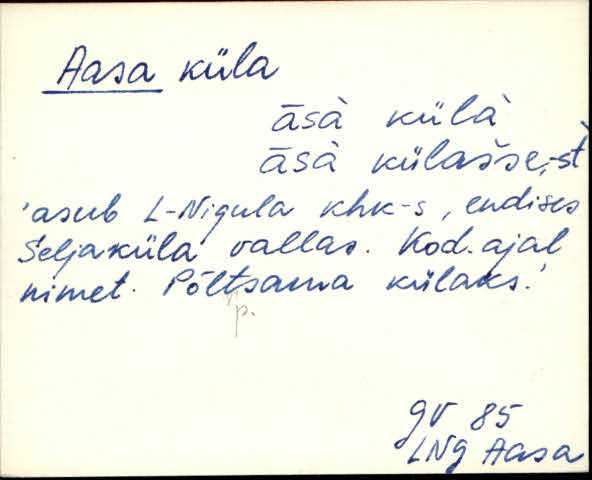 Aasa küla
āsà külà
āsà külàšse, -st
'asub L-Nigula khk-s, endises
Seljaküla vallas. Kod. ajal
nimet. Põltsama külaks.'
p.
gv 85
LNg Aasa